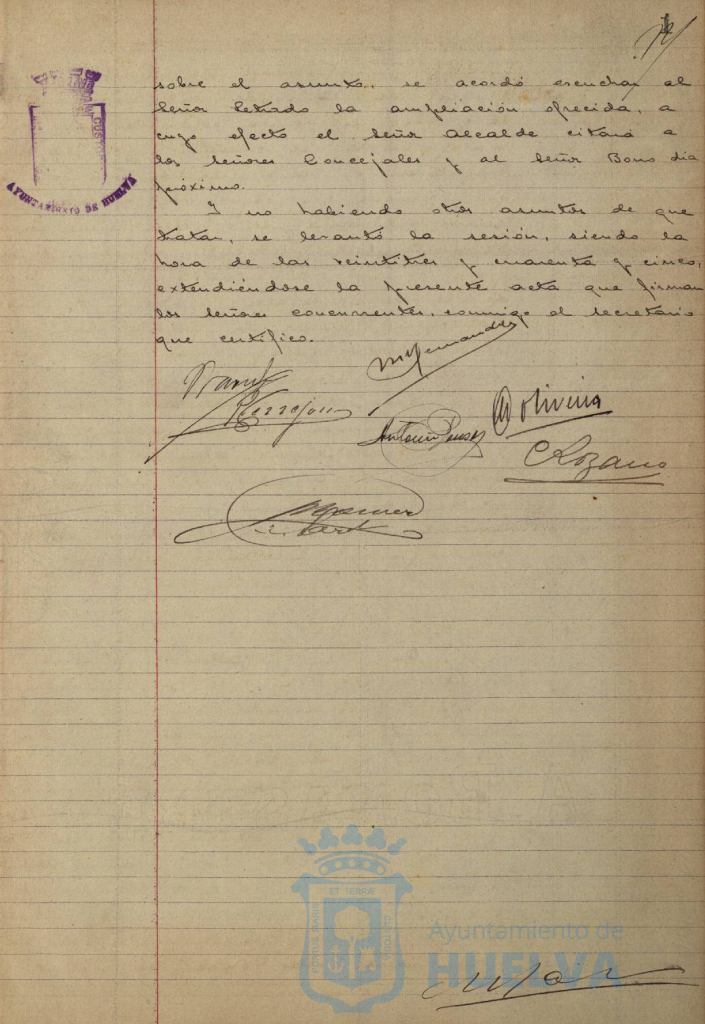 sobre el asunto, se acordó escuchar al
Señor Letrado la ampliación ofrecida, a
cuyo efecto el Señor Alcalde citará a
los Señores Concejales y al Señor Bono dia
próximo.
Y no habiendo otros asuntos de que
tratar, se levantó la sesión, siendo la
hora de las veintitres y cuarenta y cinco,
extendiéndose la presente acta que firman
los Señores concurrentes, conmigo el Secretario
que certifico.
AYUNTAMIENTO DE HUELVA
CUSTO
M Hernandez
Terrejon
Oliveira
Antonio
C Lozano
PORTUS MARIS
ET TERRÆ
CUSTODIA
Ayuntamiento de
HUELVA